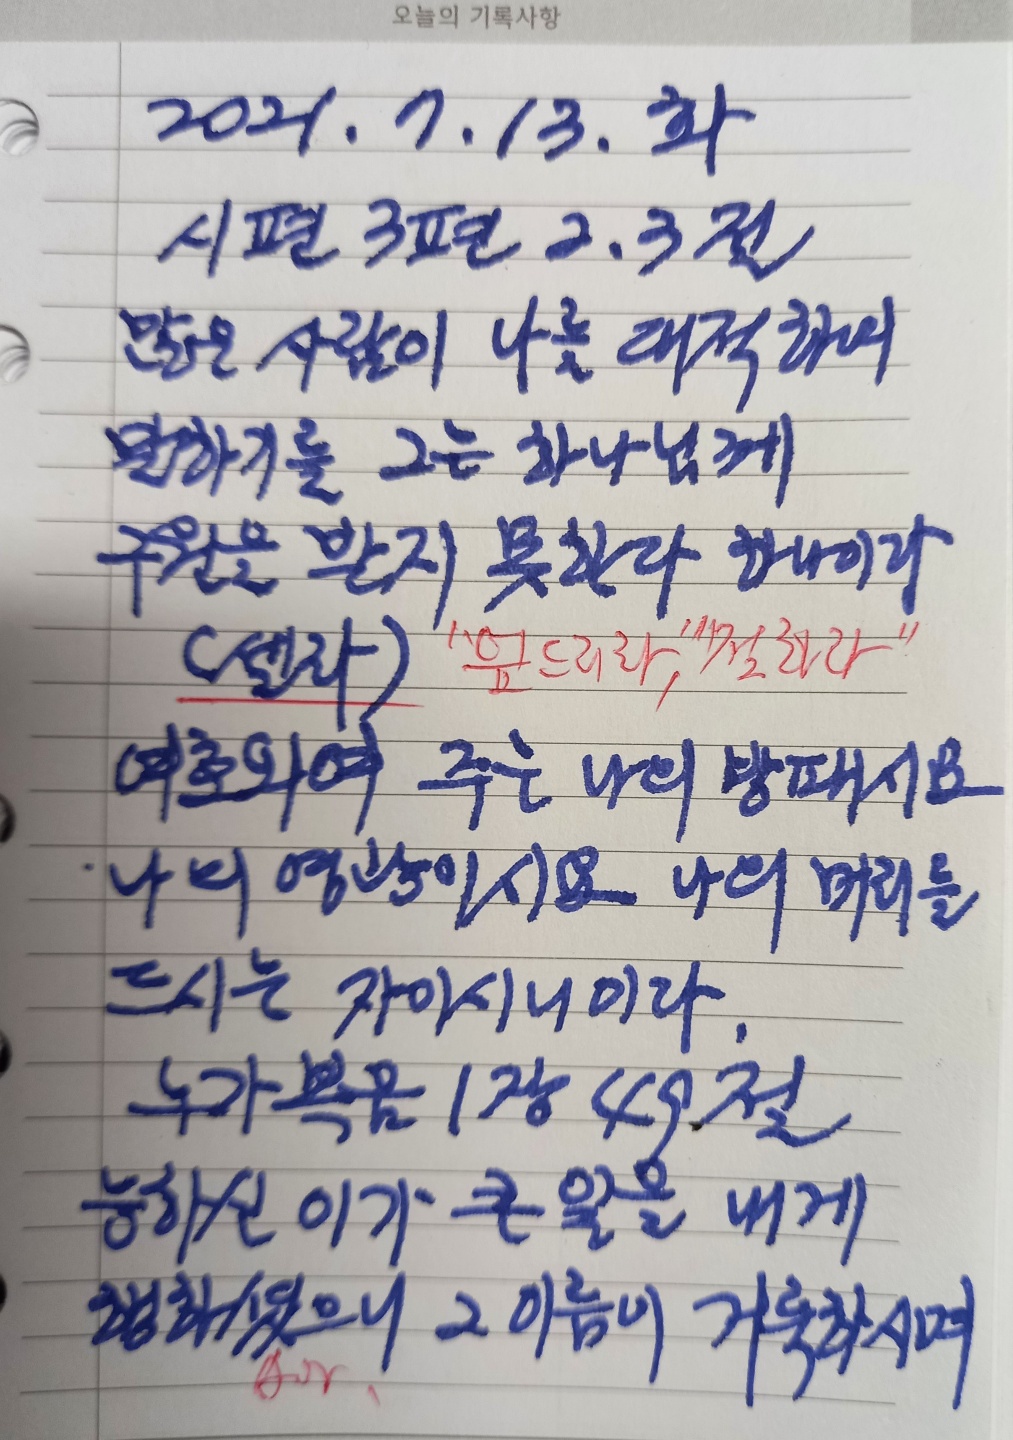 오늘의 기록사항
2021. 7. 13. 화
시편 3편 2.3절
많은 사람이 나를 대적하며
말하기를 그는 하나님께
구원을 받지 못한다 하나이다
(셀라) "엎드리라," "절하라"
여호와여 주는 나의 방패시요
나의 영광이시요 나의 머리를
드시는 자이시니이다.
누가복음 1장 49.절
능하신 이가 큰 일을 내게
행하셨으니 그 이름이 거룩하시며